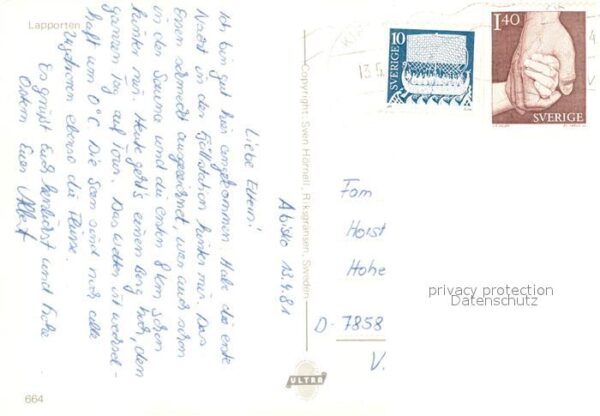 Lapporten
Abisko 13.4.81
Liebe Eltern!
Ich bin gut hier angekommen. Habe die erste
Nacht in der Fjellstation hinter mir. Das
Essen schmeckt ausgezeichnet, war auch schon
in der Sauna und die ersten 8 km schon
hinter mir. Heute geht's einen Berg hoch, den
ganzen Tag auf Tour. Das Wetter ist wechsel-
haft um 0°C. Die Seen sind noch alle
zugefroren ebenso die Flüsse.
Es grüßt Euch herzlichst und frohe
Ostern Euer
664
Copyright: Sven Hörnell, Riksgränsen, Sweden
ULTRA
10
SVERIGE
1.40
SVERIGE
13.
Fam
Horst
Hohe
D-7858
V.
privacy protection
Datenschutz